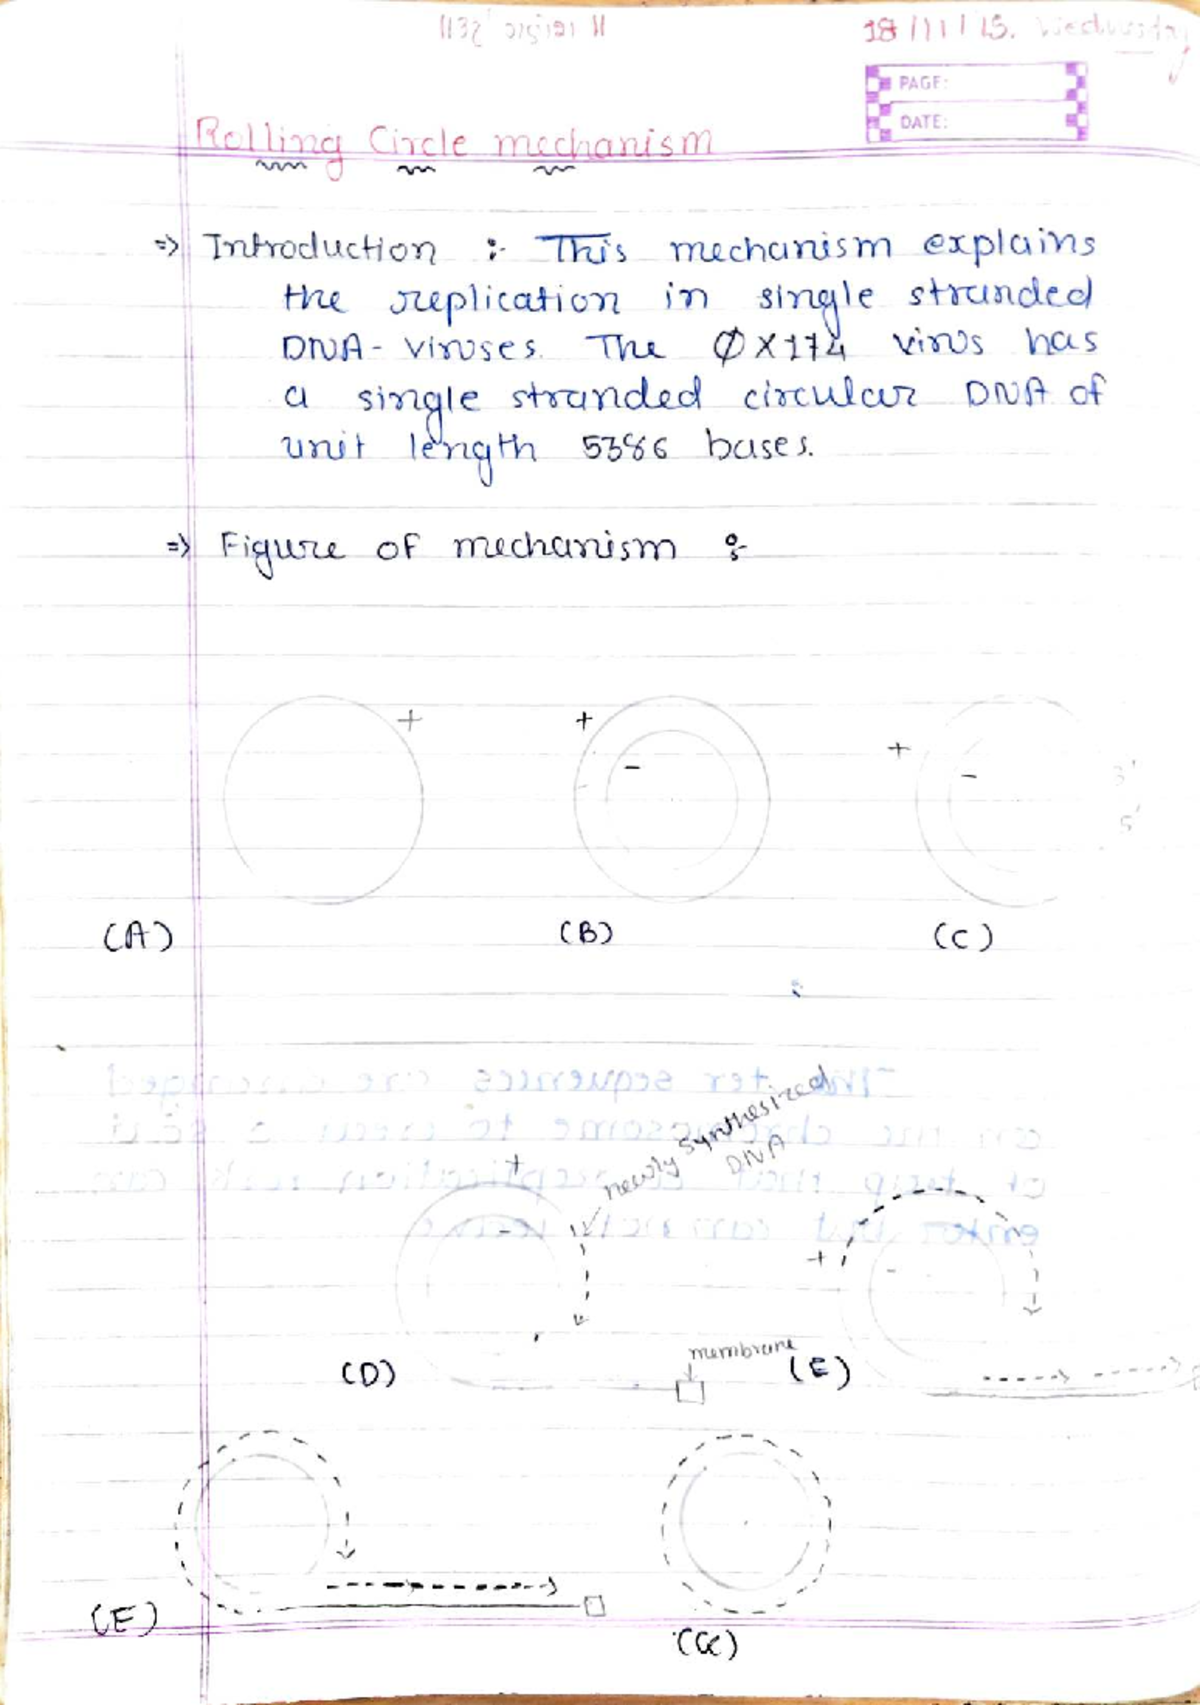 18/11/15. Wednesday
PAGE:
DATE:
Rolling Circle mechanism
=> Introduction :- This mechanism explains
the replication in single stranded
DNA- viruses. The ØX174 virus has
a single stranded circular DNA of
unit length 5386 bases.
=> Figure of mechanism :-
+
+
-
+
-
3'
5'
(A)
(B)
(C)
newly synthesized
DNA
+
+
-
membrane
(D)
(E)
(E)
(G)